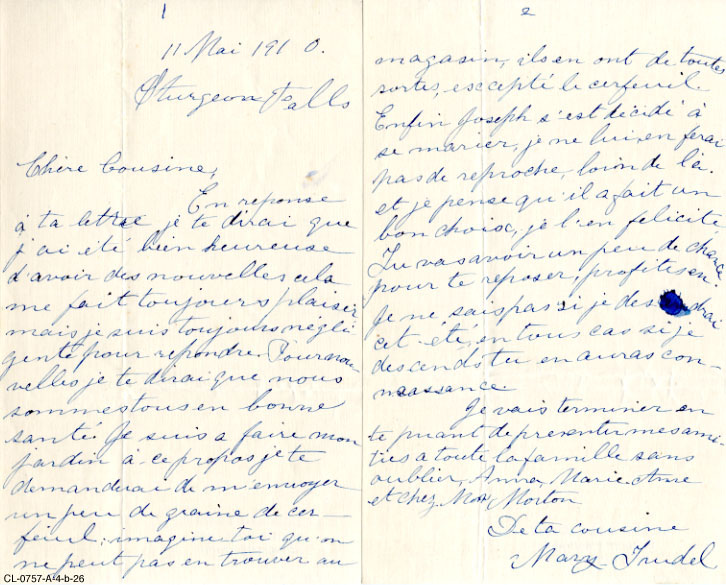 1
11 Mai 1910.
Sturgeon Falls
Chère Cousine,
En reponse
à ta lettre je te dirai que
j'ai été bien heureuse
d'avoir des nouvelles cela
me fait toujours plaisir
mais je suis toujours négli
gente pour repondre. Pour nou
velles je te dirai que nous
sommes tous en bonne
santé. Je suis a faire mon
jardin à ce propos je te
demanderai de m'envoyer
un peu de graine de cer-
feuil; imagine toi qu'on
ne peut pas en trouver au
CL-0757-A-4-b-26
2
magasin, ils en ont de toutes
sortes, excepté le cerfeuil.
Enfin Joseph s'est décidé à
se marier, je ne lui en ferai
pas de reproche, loin de là.
et je pense qu'il a fait un
bon choix, je l'en felicite
Tu vas avoir un peu de chance
pour te reposer, profites en.
Je ne sais pas si je des drai
cet été, en tous cas si je
descends tu en auras con-
naissance
Je vais terminer en
te priant de presenter mes ami-
tiés a toute la famille sans
oublier, Anna, Marie-Anne
et chez Morton
De ta cousine
Mary Trudel